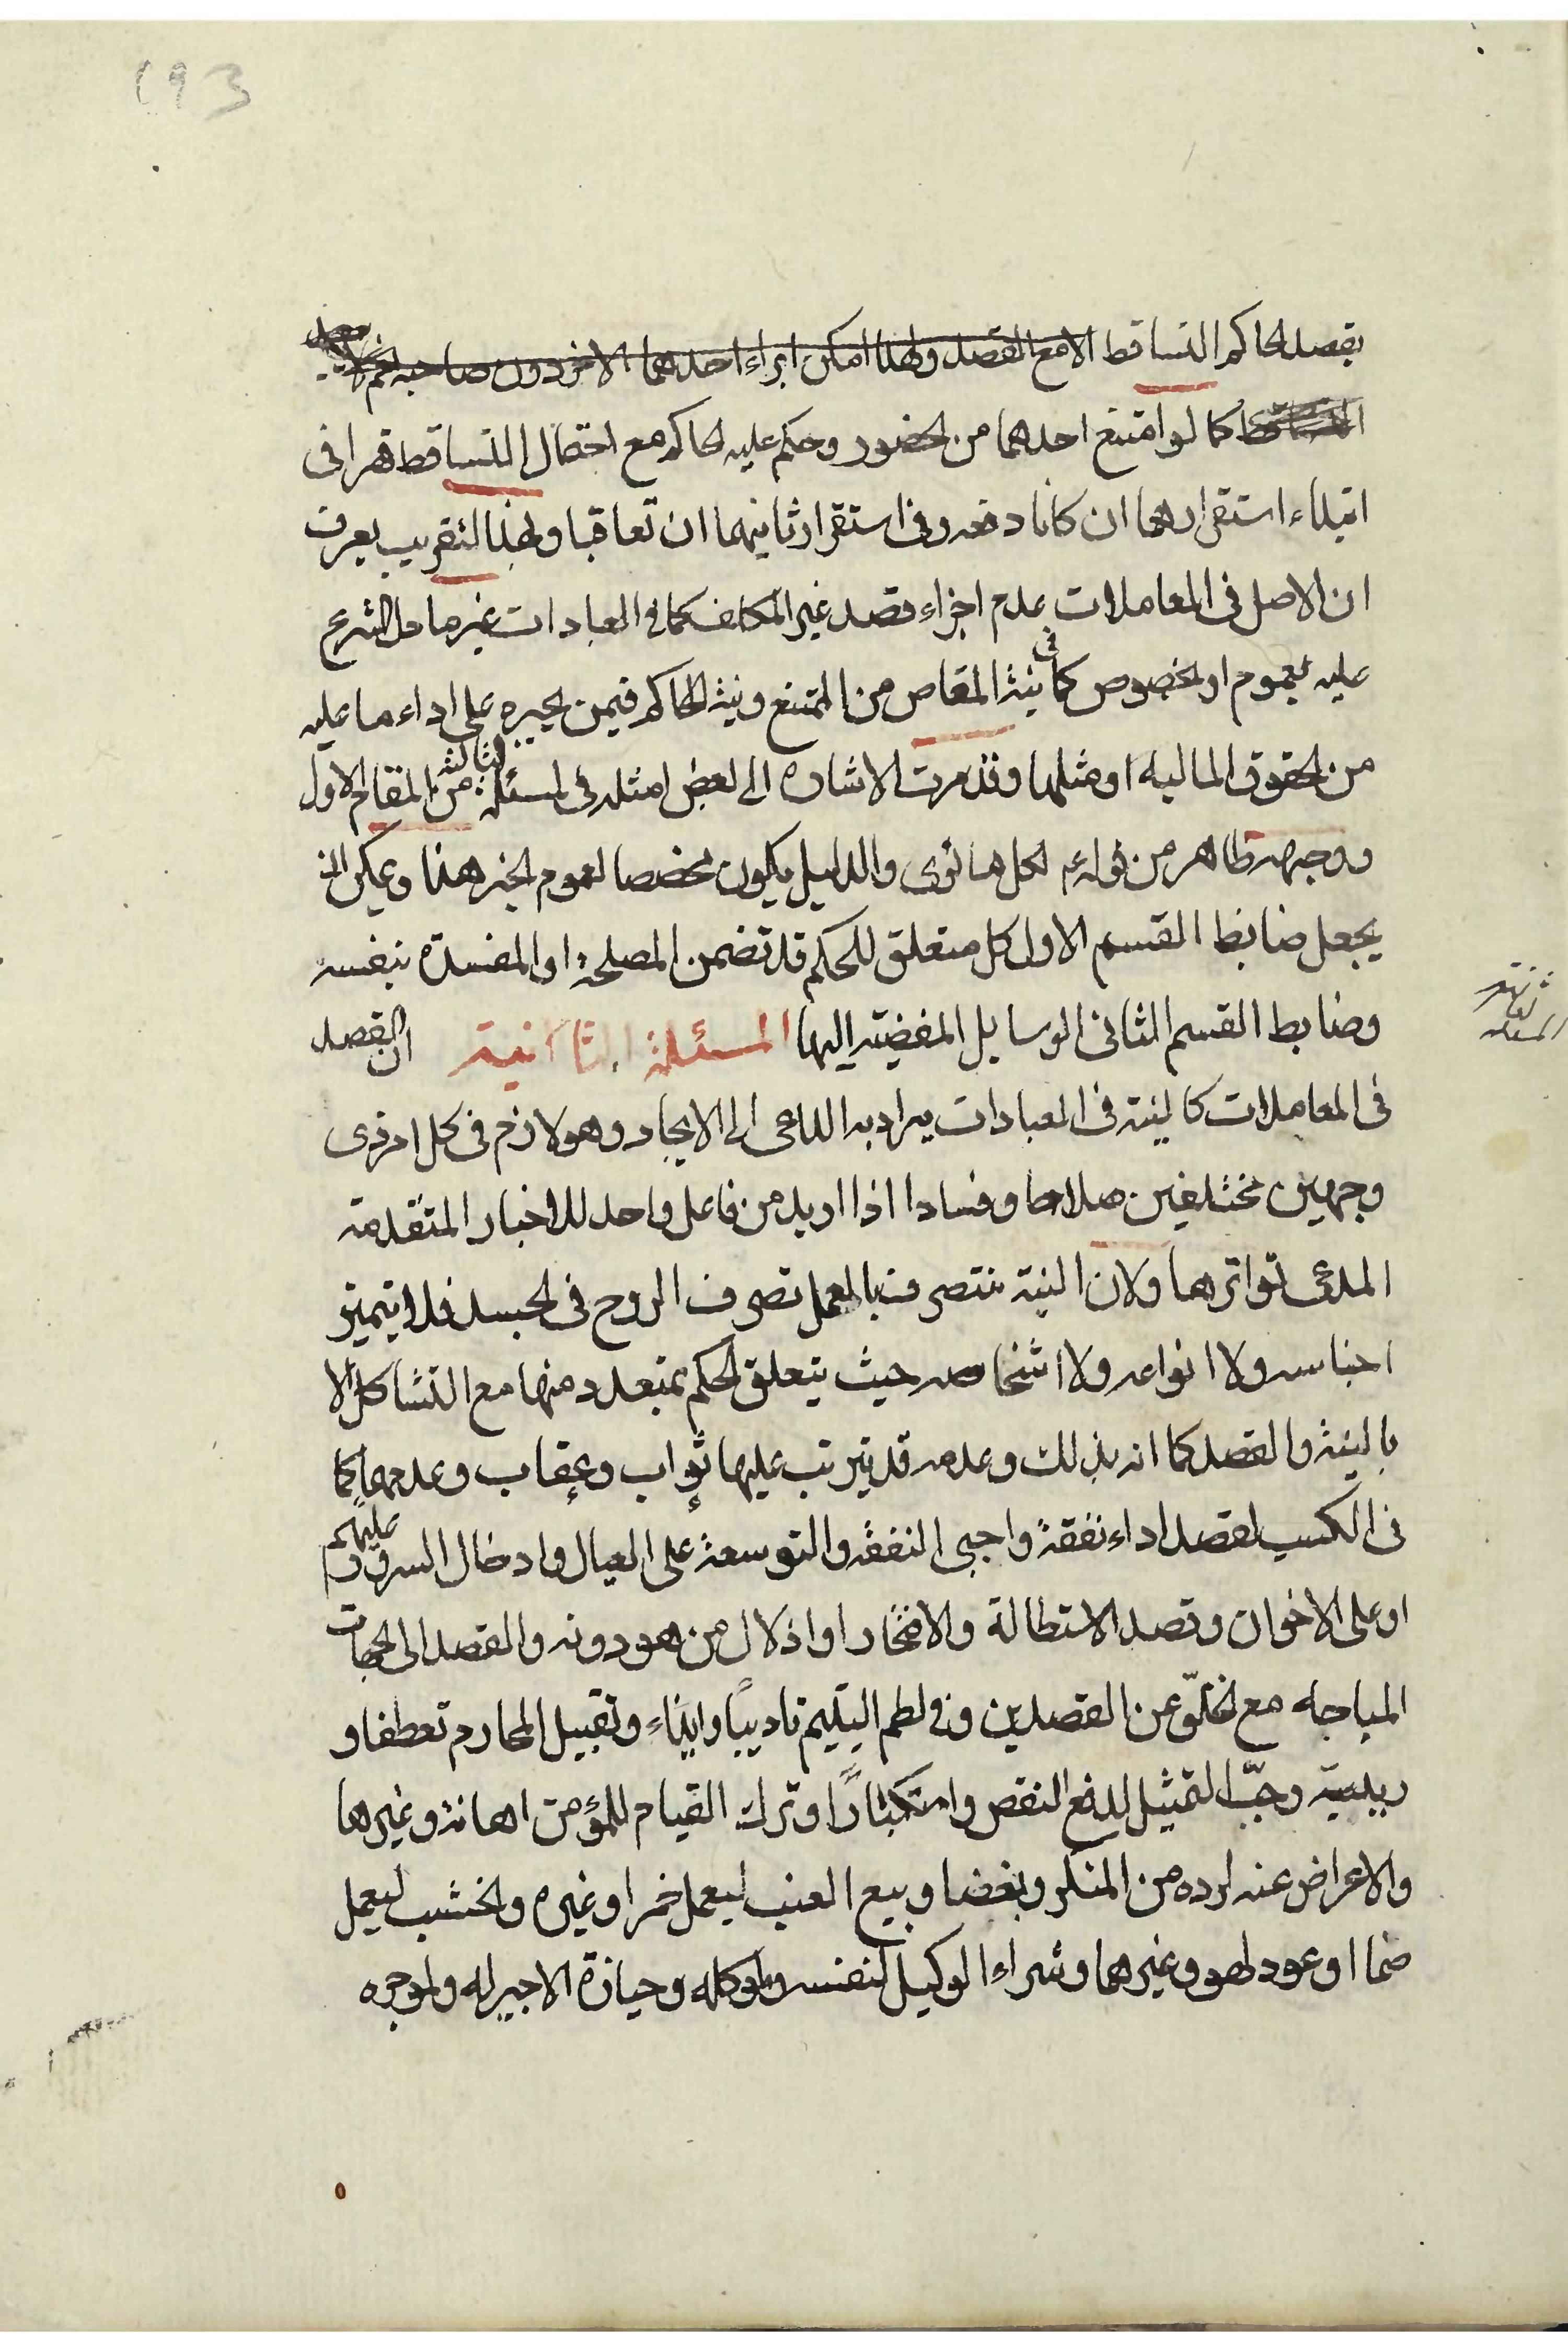 193
بقصد الحاكم التساقط الا مع القصد ولهذا امكن ابراء احدهما الاخر دون صاحبه
كما لو امتنع احدهما من الحضور وحكم عليه الحاكم مع احتمال التساقط قهرا فى
ابتداء استقرارهما ان كانا دفعه وفى استقرار ثانيهما ان تعاقبا وبهذا التقريب يعرف
ان الاصل فى المعاملات عدم اجزاء قصد غير المكلف كما فى العبادات غير ما دل الشرع
عليه بعموم او بخصوص كما فى نية المقاص من الممتنع ونية الحاكم فيمن يجبره على اداء ما عليه
من الحقوق الماليه او مثلها وقد مرت الاشاره الى بعض امثله فى المسئلة الثالثه من المقام الاول
ووجهه ظاهر من قوله ع لكل ما نوى والدليل يكون مخصصا لعموم الخبر هذا ويمكن ان
يجعل ضابط القسم الاول كل متعلق للحكم قد تضمن المصلحة او المفسدة بنفسه
وضابط القسم الثانى الوسايل المفضيته اليها المسئلة الثانية ان القصد
فى المعاملات كالنية فى العبادات يراد به الداعى الى الايجاد وهو لازم فى كل امر ذى
وجهين مختلفين صلاحا وفسادا اذا اريد من فاعل واحد للاخبار المتقدمة
المدعى تواترها ولان النية تتصرف بالعمل تصرف الروح فى الجسد فلا يتميز
اجناسه ولا انواعه ولا اشخاصه حيث يتعلق الحكم بمتعدد منها مع التشاكل الا
بالنية والقصد كما انه بذلك وعدمه قد يترتب عليها ثواب وعقاب وعدمهما كما
فى الكسب لقصد اداء نفقة واجبى النفقة والتوسعة على العيال وادخال السرور عليهم
او على الاخوان وقصد الاستطالة والافتخار او اذلال من هو دونه والقصد الى الجهات
المباحه مع الخلوّ عن القصدين وفى لطم اليتيم تاديبًا وايذاءً وتقبيل المحارم تعطفا و
ريبة وحبّ التمثيل لدفع النقص واستكبارًا وترك القيام للمؤمن اهانة وغيرها
والاعراض عنه لرده من المنكر وبغضا وبيع العنب ليعمل خمرا وغيره والخشب ليعمل
صنما او عود لهو وغيرهما وشراء الوكيل لنفسه ولموكله وحيازة الاجير له ولموجره